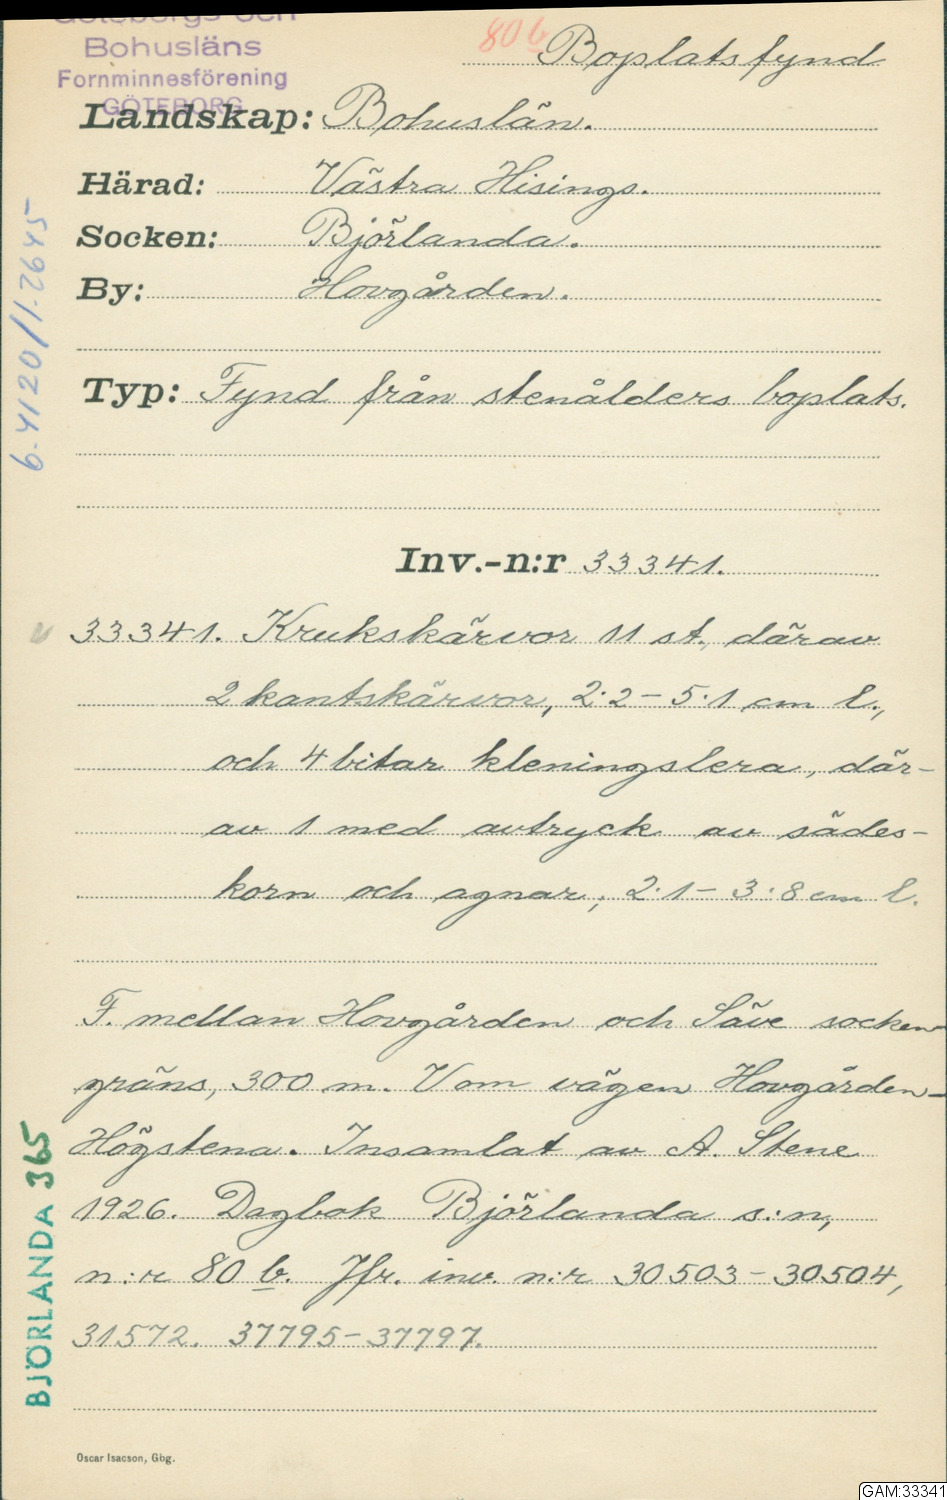 Göteborgs och
Bohusläns
Fornminnesförening
GÖTEBORG
80 b
Boplatsfynd
Landskap: Bohuslän.
Härad: Västra Hisings.
Socken: Björlanda.
By: Hovgården.
Typ: Fynd från stenålders boplats.
Inv.-n:r 33341.
33341. Krukskärvor 11 st., därav
2 kantskärvor, 2.2 – 5.1 cm l.,
och 4 bitar kleningslera, där-
av 1 med avtryck av sädes-
korn och agnar, 2.1 – 3.8 cm l.
F. mellan Hovgården och Säve socken-
gräns, 300 m. V om vägen Hovgården-
Högstena. Insamlat av A. Stene
1926. Dagbok Björlanda s:n,
n:r 80 b. Jfr. inv. n:r 30503–30504,
31572. 37795–37797.
Oscar Isacson, Gbg.
6.4120/1.2645
BJÖRLANDA 365
GAM:33341